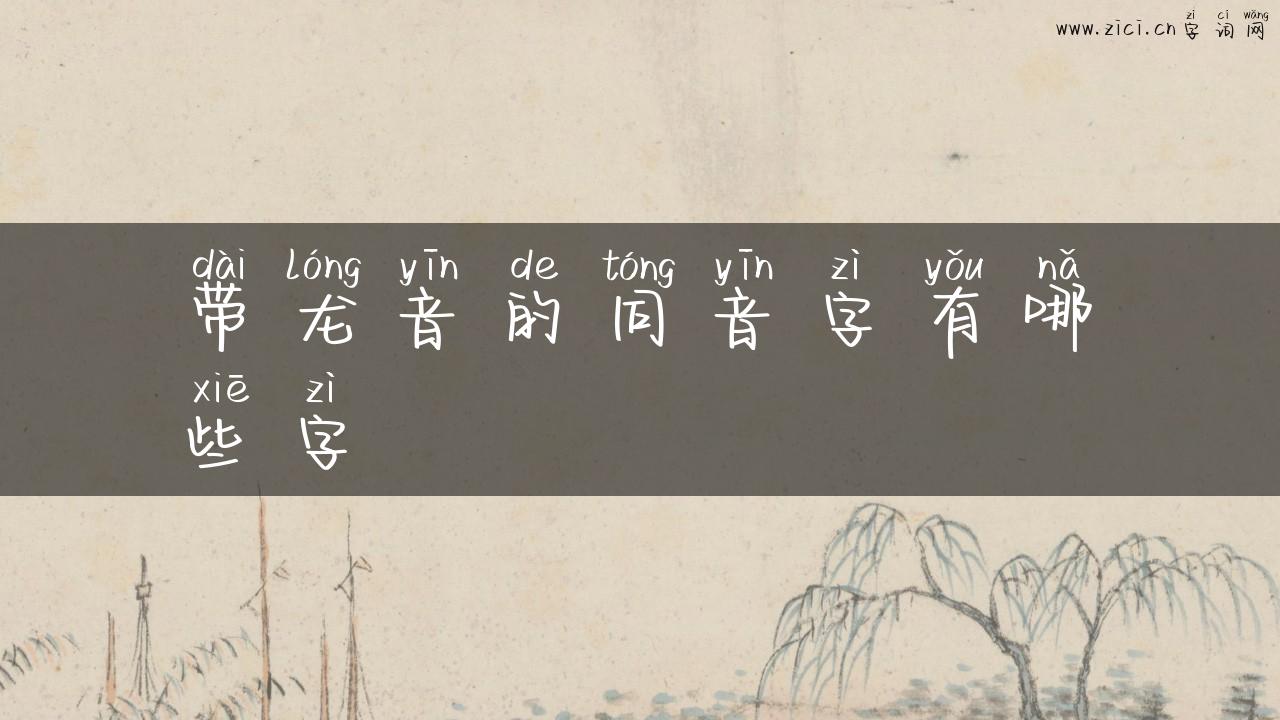 zì cí wǎng
www.zici.cn 字词网
dài lóng yīn de tóng yīn zì yǒu nǎ
带龙音的同音字有哪
xiē zì
些字